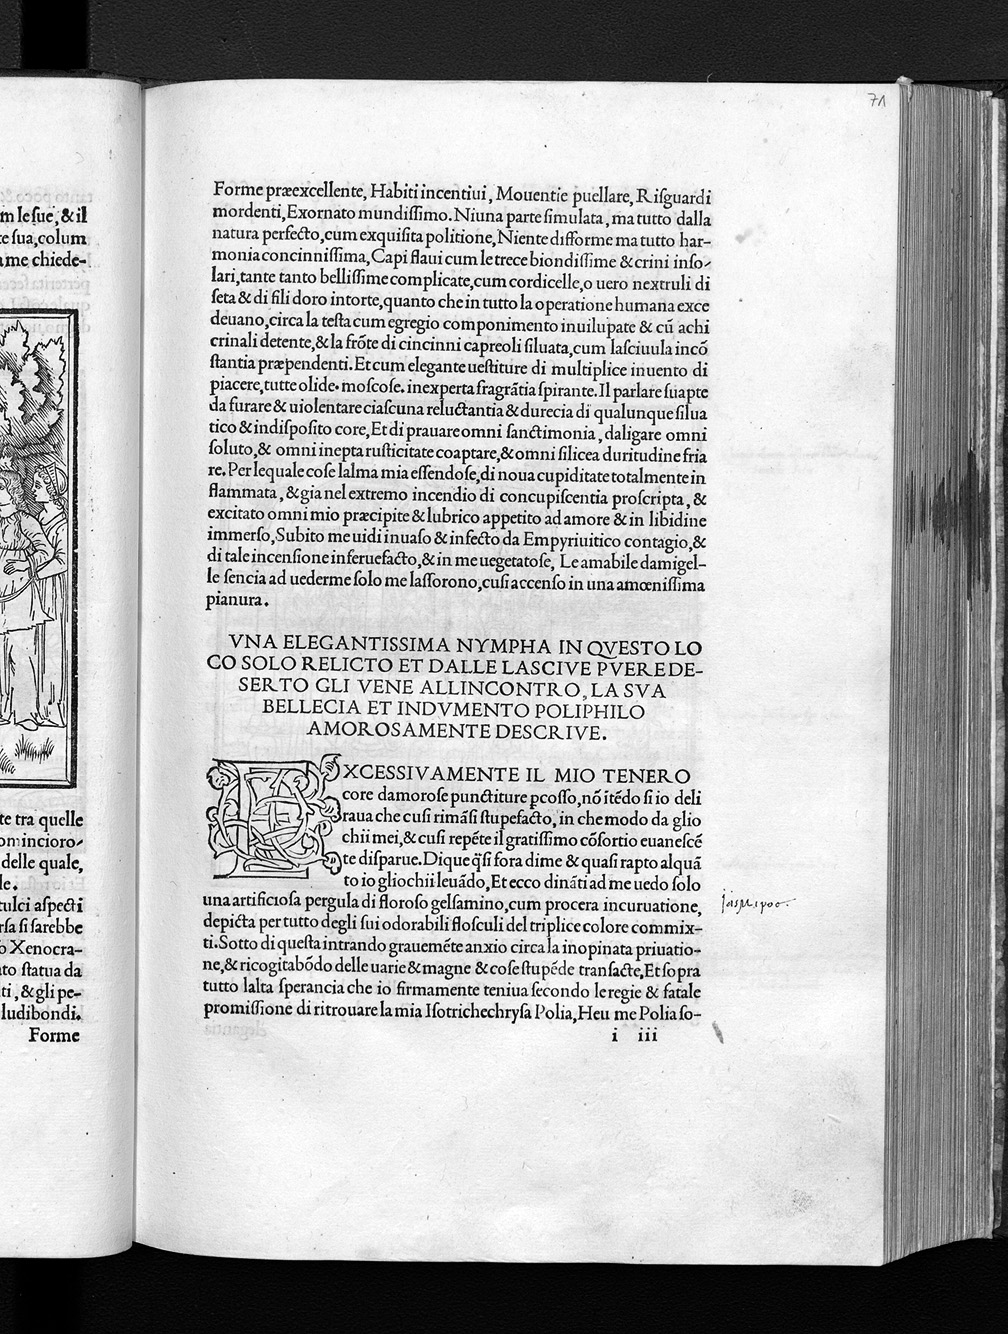 m le ſue, & il
te ſua, colum
ame chiede-
te tra quelle
omincioro-
delle quale,
le.
tulci aſpecti
rſa ſi ſarebbe
o Xenocra-
ato ſtatua da
ti, & gli pe-
ludibondi.
Forme
71
Forme præexcellente, Habiti incentiui, Mouentie puellare, Riſguardi
mordenti, Exornato mundiſſimo. Niuna parte ſimulata, ma tutto dalla
natura perfecto, cum exquiſita politione, Niente difforme ma tutto har-
monia concinniſſima, Capi flaui cum le trece biondiſſime & crini inſo-
lari, tante tanto belliſſime complicate, cum cordicelle, o uero nextruli di
ſeta & di fili doro intorte, quanto che in tutto la operatione humana exce
deuano, circa la teſta cum egregio componimento inuilupate & cũ achi
crinali detente, & la frõte di cincinni capreoli ſiluata, cum laſciuula incõ
ſtantia præpendenti. Et cum elegante ueſtiture di multiplice inuento di
piacere, tutte olide. moſcoſe. inexperta fragrãtia ſpirante. Il parlare ſuapte
da furare & uiolentare ciaſcuna reluctantia & durecia di qualunque ſilua
tico & indiſpoſito core, Et di prauare omni ſanctimonia, daligare omni
ſoluto, & omni inepta ruſticitate coaptare, & omni ſilicea duritudine fria
re. Per lequale coſe lalma mia eſſendoſe, di noua cupiditate totalmente in
flammata, & gia nel extremo incendio di concupiſcentia proſcripta, &
excitato omni mio præcipite & lubrico appetito ad amore & in libidine
immerſo, Subito me uidi inuaſo & infecto da Empyriuitico contagio, &
di tale incenſione inferuefacto, & in me uegetatoſe, Le amabile damigel-
le ſencia ad uederme ſolo me laſſorono, cuſi accenſo in una amœniſſima
pianura.
VNA ELEGANTISSIMA NYMPHA IN QVESTO LO
CO SOLO RELICTO ET DALLE LASCIVE PVERE DE-
SERTO GLI VENE ALLINCONTRO, LA SVA
BELLECIA ET INDVMENTO POLIPHILO
AMOROSAMENTE DESCRIVE.
EXCESSIVAMENTE IL MIO TENERO
core damoroſe puncticture ꝑcoſſo, nõ ĩtẽdo ſi io deli
raua che cuſi rimãſi ſtupefacto, in che modo da glio
chii mei, & cuſi repẽte il gratiſſimo cõſortio euaneſcẽ
te diſparue. Dique q̃ſi fora dime & quaſi rapto alquã
to io gliochii leuãdo, Et ecco dinãti ad me uedo ſolo
una artificioſa pergula di floroſo gelſamino, cum procera incuruatione,
depicta per tutto degli ſui odorabili floſculi del triplice colore commix-
ti. Sotto di queſta intrando grauemẽte anxio circa la inopinata priuatio-
ne, & ricogitabõdo delle uarie & magne & coſe ſtupẽde tranſacte, Et ſopra
tutto lalta ſperancia che io firmamente teniua ſecondo le regie & fatale
promiſſione di ritrouare la mia Iſotrichechryſa Polia, Heu me Polia ſo-
i iii